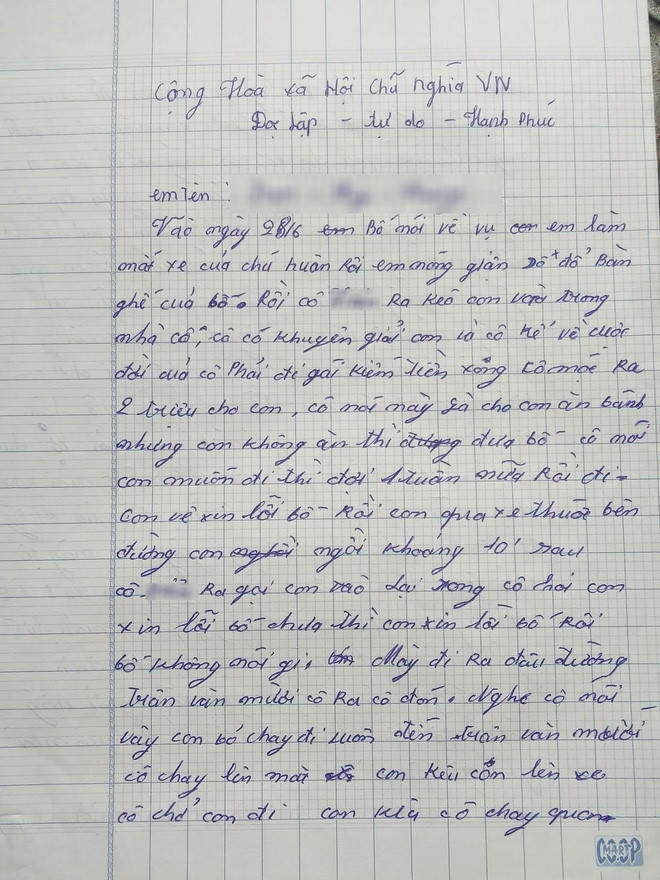 Cộng Hoà xã Hội chủ nghĩa VN
Độc Lập - tự do - Hạnh Phúc
em tên :
Vào ngày 28/6 em Bố nói về vụ con em làm
mất xe của chú huân Rồi em nóng giận xô đổ Bàn
ghế của bố. Rồi cô Ra kéo con vào trong
nhà cô, cô có khuyên giải con là cô kể về cuộc
đời của cô Phải đi gái kiếm tiền xong cô móc Ra
2 triệu cho con, cô nói này là cho con ăn bánh
nhưng con không ăn thì đưa bố cô nói
con muốn đi thì đợi 1 tuần nữa Rồi đi-
con về xin lỗi bố Rồi con qua xe thuốc bên
đường con ngồi khoảng 10' sau
cô Ra gọi con vào lại xong cô hỏi con
xin lỗi bố chưa thì con xin lỗi bố Rồi
bố không nói gì. Mày đi Ra đầu đường
trần văn mười cô Ra cô đón. Nghe cô nói
vậy con bỏ chạy đi luôn đến trần văn mười
cô chạy lên mà con kêu con lên xe
cô chở con đi con kêu cô chạy
CO.OP
MART